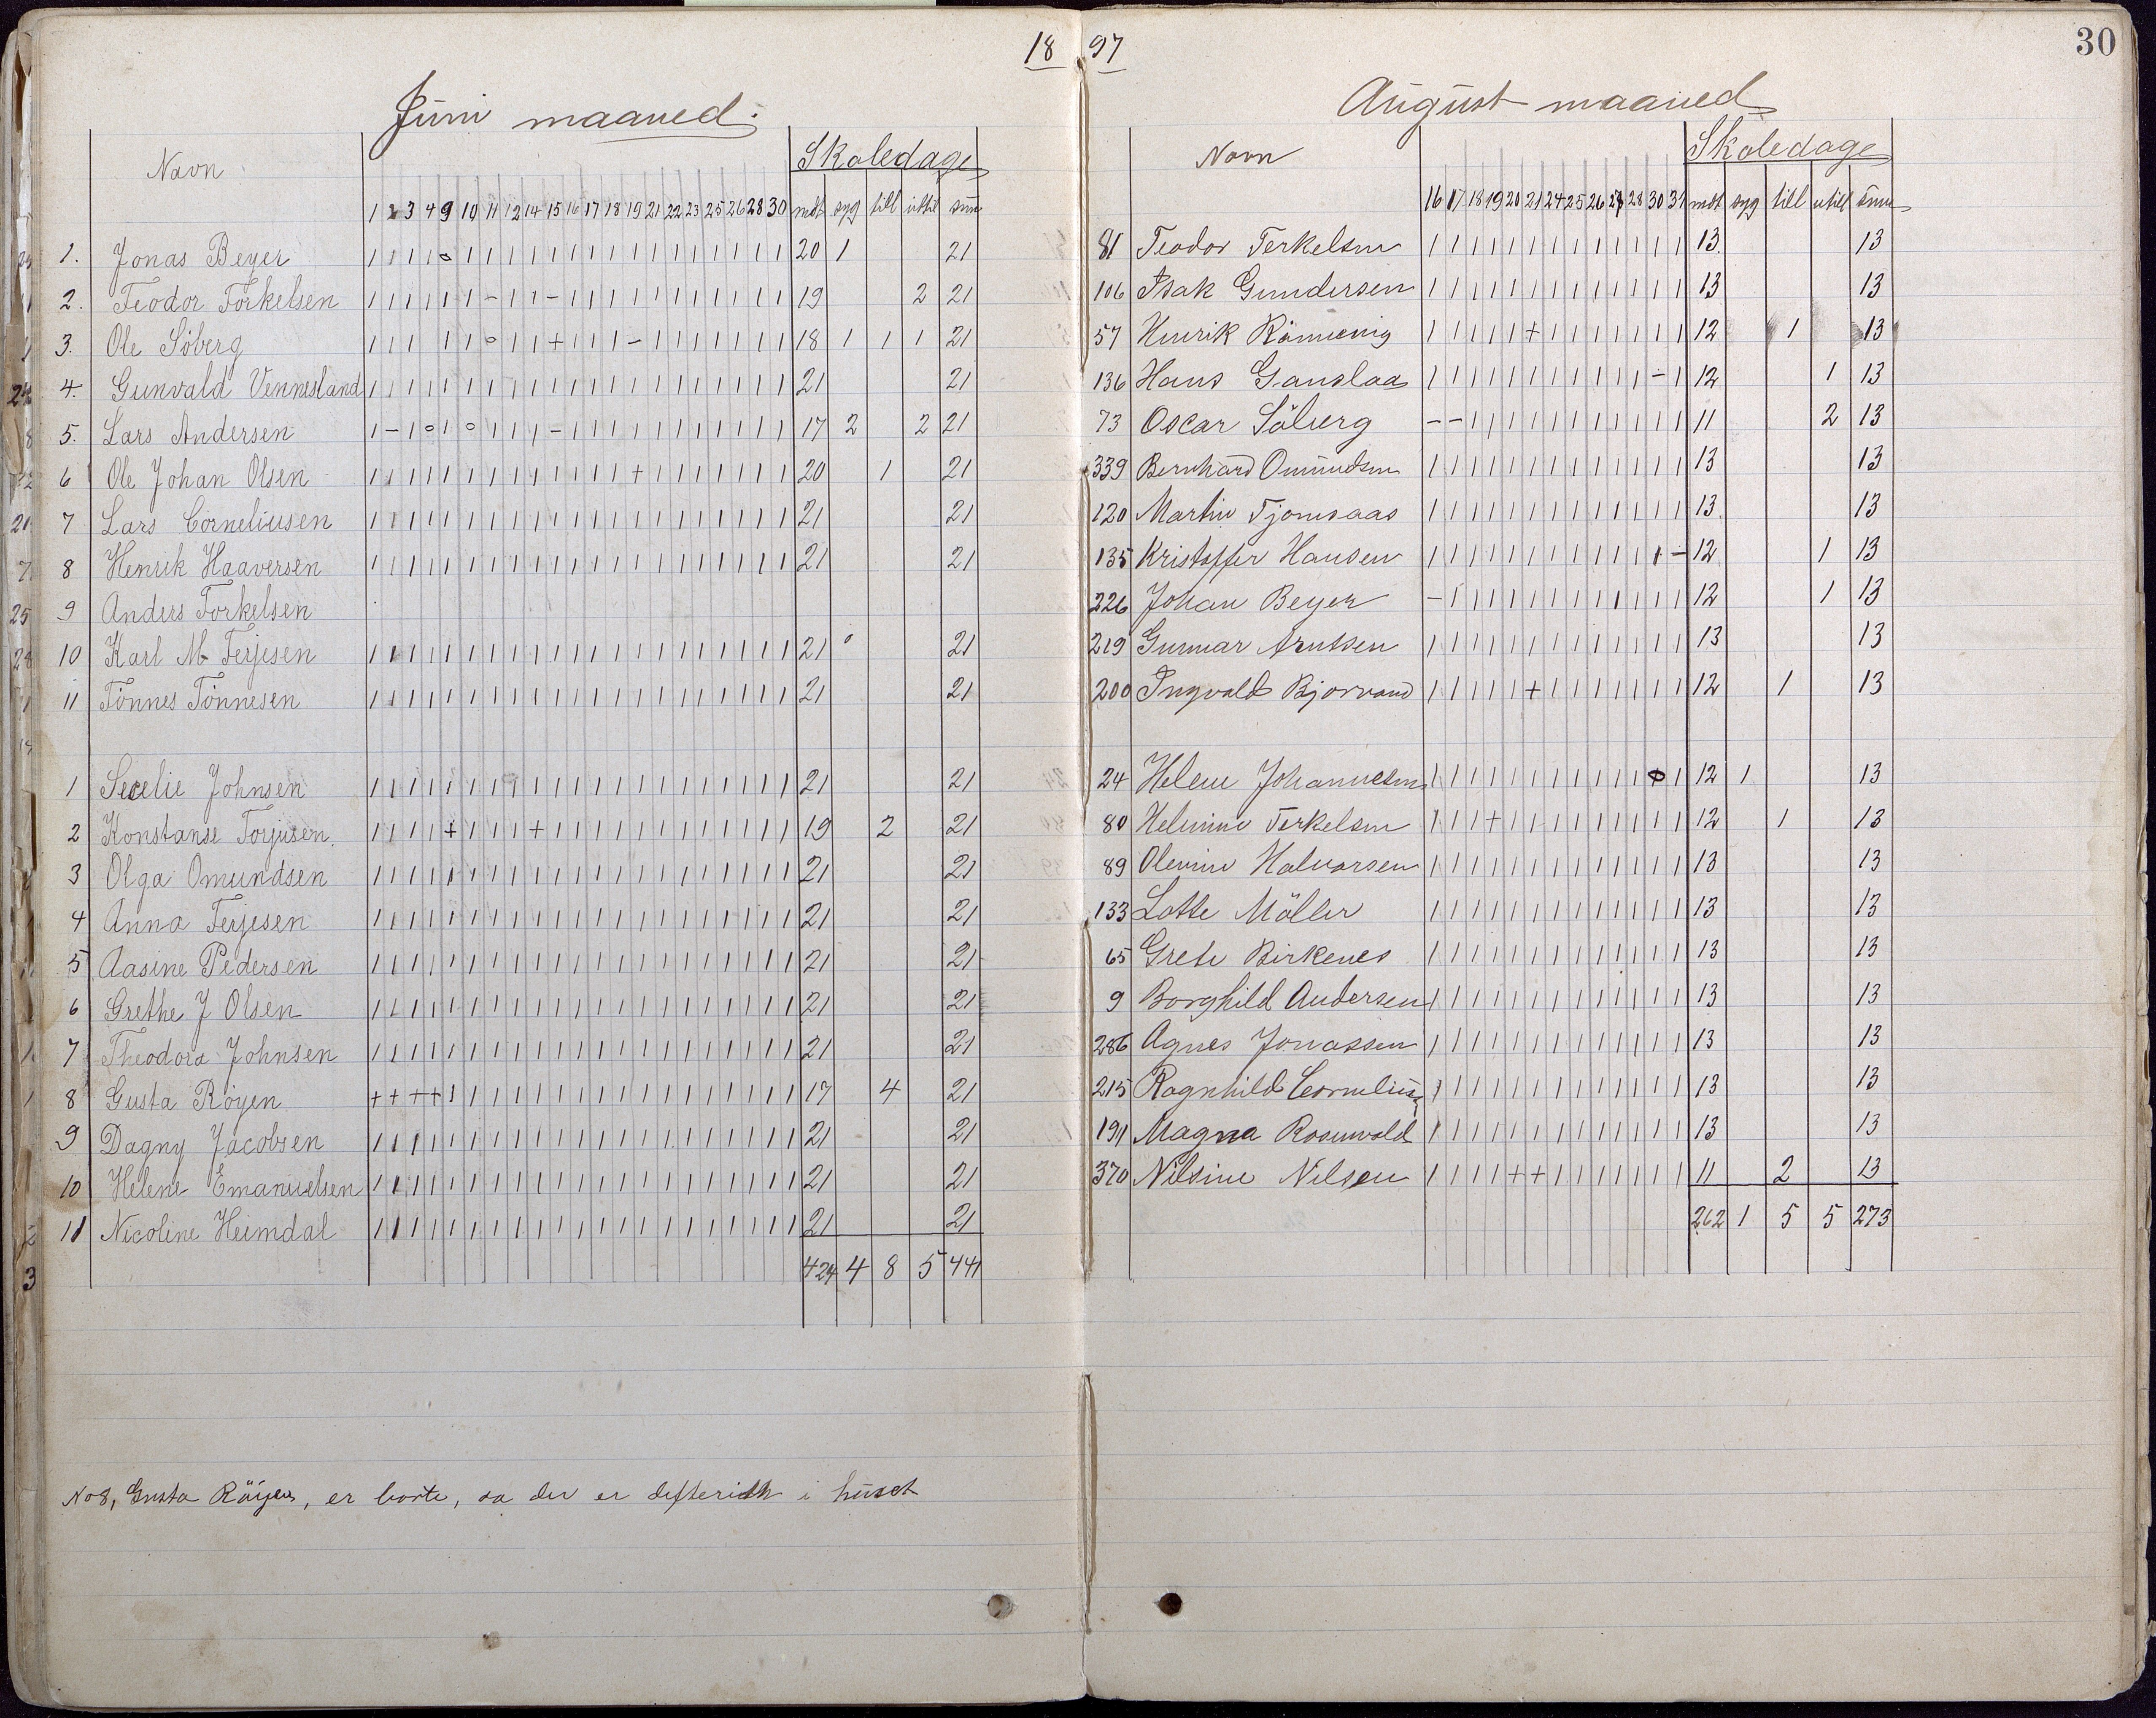 18 97
30
Juni maaned.
Navn Skoledage
1 2 3 4 9 10 11 12 14 15 16 17 18 19 21 22 23 25 26 28 30 mdt syg till utill sum
1. Jonas Beyer 1 1 1 1 o 1 1 1 1 1 1 1 1 1 1 1 1 1 1 1 1 20 1 21
2. Teodor Torkelsen 1 1 1 1 1 1 - 1 1 - 1 1 1 1 1 1 1 1 1 1 1 19 2 21
3. Ole Söberg 1 1 1 1 1 o 1 1 + 1 1 1 - 1 1 1 1 1 1 1 1 18 1 1 1 21
4. Gunvald Vennesland 1 1 1 1 1 1 1 1 1 1 1 1 1 1 1 1 1 1 1 1 1 21 21
5. Lars Andersen 1 - 1 o 1 o 1 1 1 - 1 1 1 1 1 1 1 1 1 1 1 17 2 2 21
6 Ole Johan Olsen 1 1 1 1 1 1 1 1 1 1 1 1 1 + 1 1 1 1 1 1 1 20 1 21
7 Lars Corneliusen 1 1 1 1 1 1 1 1 1 1 1 1 1 1 1 1 1 1 1 1 1 21 21
8 Henrik Haaversen 1 1 1 1 1 1 1 1 1 1 1 1 1 1 1 1 1 1 1 1 1 21 21
9 Anders Torkelsen
10 Karl M Terjesen 1 1 1 1 1 1 1 1 1 1 1 1 1 1 1 1 1 1 1 1 1 21 21
11 Tönnes Tönnesen 1 1 1 1 1 1 1 1 1 1 1 1 1 1 1 1 1 1 1 1 1 21 21
1 Secelie Johnsen 1 1 1 1 1 1 1 1 1 1 1 1 1 1 1 1 1 1 1 1 1 21 21
2 Konstanse Torjusen. 1 1 1 1 + 1 1 1 + 1 1 1 1 1 1 1 1 1 1 1 1 19 2 21
3 Olga Omundsen 1 1 1 1 1 1 1 1 1 1 1 1 1 1 1 1 1 1 1 1 1 21 21
4 Anna Terjesen 1 1 1 1 1 1 1 1 1 1 1 1 1 1 1 1 1 1 1 1 1 21 21
5 Aasine Pedersen 1 1 1 1 1 1 1 1 1 1 1 1 1 1 1 1 1 1 1 1 1 21 21
6 Grethe J Olsen 1 1 1 1 1 1 1 1 1 1 1 1 1 1 1 1 1 1 1 1 1 21 21
7 Theodora Johnsen 1 1 1 1 1 1 1 1 1 1 1 1 1 1 1 1 1 1 1 1 1 21 21
8 Gusta Röyen + + + + 1 1 1 1 1 1 1 1 1 1 1 1 1 1 1 1 1 17 4 21
9 Dagny Jacobsen 1 1 1 1 1 1 1 1 1 1 1 1 1 1 1 1 1 1 1 1 1 21 21
10 Helene Emanuelsen 1 1 1 1 1 1 1 1 1 1 1 1 1 1 1 1 1 1 1 1 1 21 21
11 Nicoline Heimdal 1 1 1 1 1 1 1 1 1 1 1 1 1 1 1 1 1 1 1 1 1 21 21
424 4 8 5 441
No 8, Gusta Röijen, er borte, da der er defterith i huset
August maaned
Navn Skoledage
16 17 18 19 20 21 24 25 26 27 28 30 31 mdt syg till utill sum
81 Teodor Terkelsen 1 1 1 1 1 1 1 1 1 1 1 1 1 13 13
106 Isak Gundersen 1 1 1 1 1 1 1 1 1 1 1 1 1 13 13
57 Henrik 1 1 1 1 1 + 1 1 1 1 1 1 1 12 1 13
136 Hans Ganslaa 1 1 1 1 1 1 1 1 1 1 1 - 1 12 1 13
73 Oscar Söberg - - 1 1 1 1 1 1 1 1 1 1 1 11 2 13
339 Bernhard Omundsen 1 1 1 1 1 1 1 1 1 1 1 1 1 13 13
120 Martin Tjomsaas 1 1 1 1 1 1 1 1 1 1 1 1 1 13 13
135 Kristoffer Hansen 1 1 1 1 1 1 1 1 1 1 1 1 - 12 1 13
226 Johan Beyer - 1 1 1 1 1 1 1 1 1 1 1 1 12 1 13
219 Gunnar Arntsen 1 1 1 1 1 1 1 1 1 1 1 1 1 13 13
200 Ingvald Bjorvand 1 1 1 1 1 + 1 1 1 1 1 1 1 12 1 13
24 Helene Johannesen 1 1 1 1 1 1 1 1 1 1 1 o 1 12 1 13
80 Helmine Terkelsen 1 1 1 + 1 1 1 1 1 1 1 1 1 12 1 13
89 Olevine Halvorsen 1 1 1 1 1 1 1 1 1 1 1 1 1 13 13
133 Lotte Möller 1 1 1 1 1 1 1 1 1 1 1 1 1 13 13
65 Grete Birkenes 1 1 1 1 1 1 1 1 1 1 1 1 1 13 13
9 Borghild Andersen 1 1 1 1 1 1 1 1 1 1 1 1 1 13 13
286 Agnes Jonassen 1 1 1 1 1 1 1 1 1 1 1 1 1 13 13
215 Ragnhild Cornelius 1 1 1 1 1 1 1 1 1 1 1 1 1 13 13
191 Magna Rosenvold 1 1 1 1 1 1 1 1 1 1 1 1 1 13 13
370 Nilsine Nilsen 1 1 1 1 + + 1 1 1 1 1 1 1 11 2 13
262 1 5 5 273